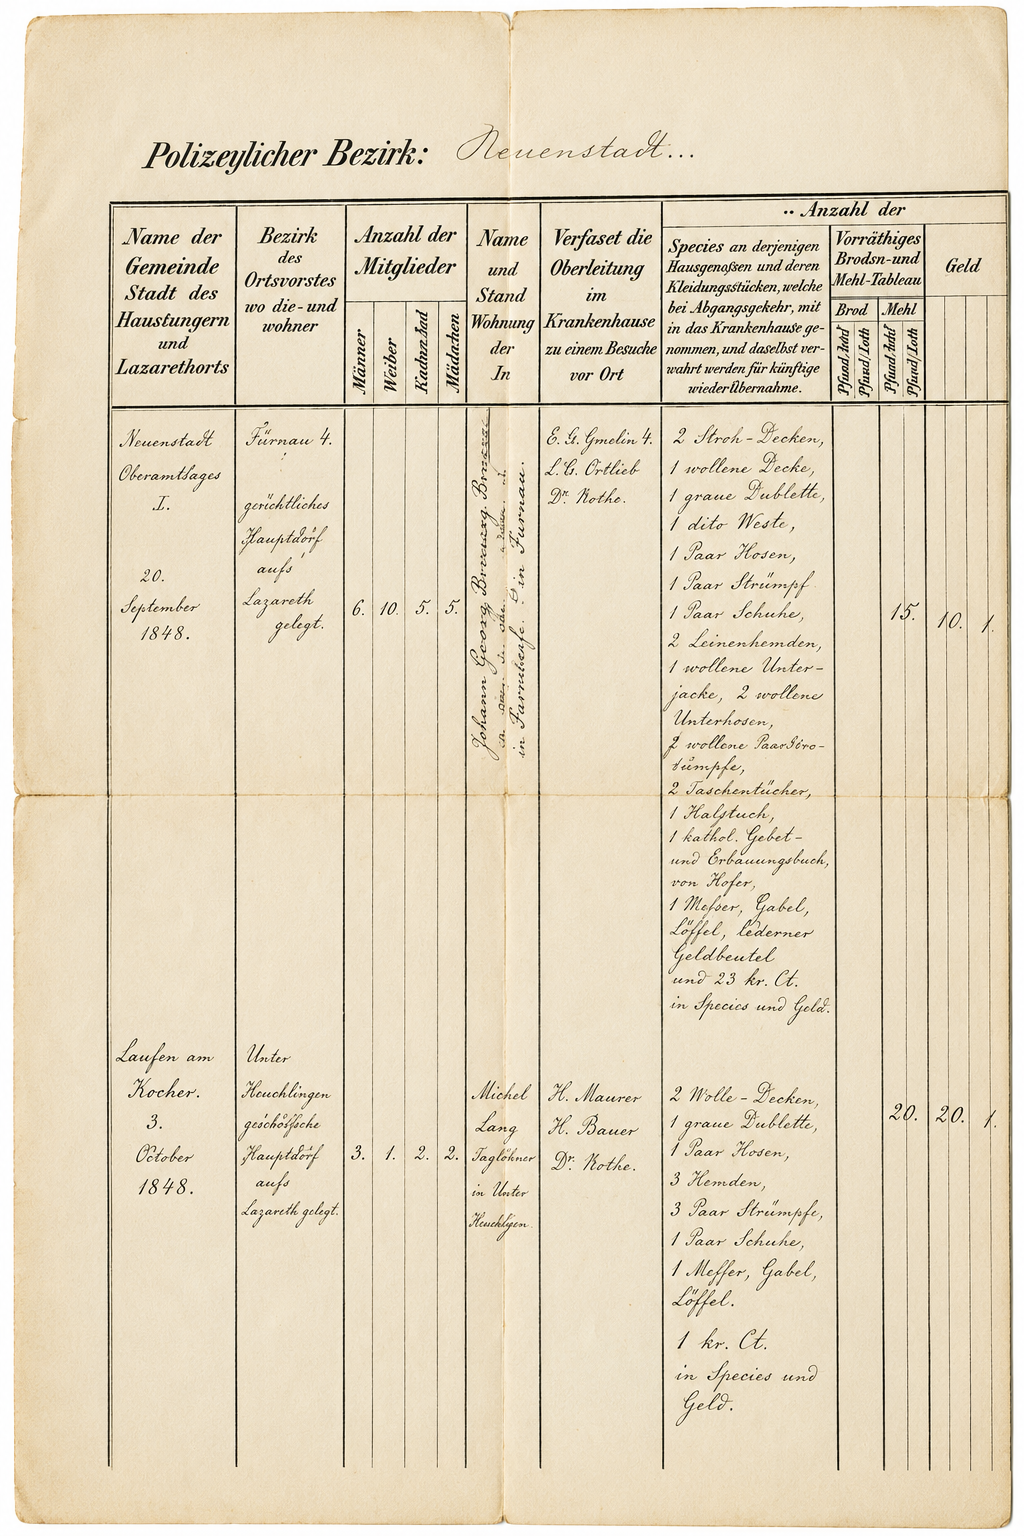 Polizeylicher Bezirk: Neuenstadt...
Name der
Gemeinde
Stadt des
Haustungern
und
Lazarethorts
Bezirk
des
Ortsvorstes
wo die-und
wohner
Anzahl der
Mitglieder
Männer
Weiber
Mädachen
Name
und
Stand
Wohnung
der
In
Verfaset die
Oberleitung
im
Krankenhause
zu einem Besuche
vor Ort
·· Anzahl der
Species an derjenigen
Hausgenoßen und deren
Kleidungsstücken, welche
bei Abgangsgekehr, mit
in das Krankenhauße ge-
nommen, und daselbst ver-
wahrt werden für künftige
wiederÜbernahme.
Vorräthiges
Brodsn-und
Mehl-Tableau
Brod
Mehl
Pfund
Pfund/Loth
Pfund
Pfund/Loth
Geld
Neuenstadt
Oberamtsages
I.
20.
September
1848.
Fürnau 4.
gerichtliches
Hauptdörf
aufs
Lazareth
gelegt.
6.
10.
5.
5.
Johann Georg
in Fürnau.
E. G. Gmelin 4.
L. G. Ortlieb
Dr. Kothe.
2 Stroh-Decken,
1 wollene Decke,
1 graue Dublette,
1 dito Weste,
1 Paar Hosen,
1 Paar Strümpf
1 Paar Schuhe,
2 Leinenhemden,
1 wollene Unter-
jacke, 2 wollene
Unterhosen,
2 wollene
2 Taschentücher,
1 Halstuch,
1 kathol. Gebet-
und Erbauungsbuch,
von Hofer,
1 Messer, Gabel,
Löffel, lederner
Geldbeutel
und 23 kr. Ct.
in Species und Geld.
15.
10.
1.
Laufen am
Kocher.
3.
October
1848.
Unter
Heuchlingen
Hauptdörf
aufs
Lazareth gelegt.
3.
1.
2.
2.
Michel
Lang
Taglöhner
in Unter
H. Maurer
H. Bauer
Dr. Kothe.
2 Wolle-Decken,
1 graue Dublette,
1 Paar Hosen,
3 Hemden,
3 Paar Strümpfe,
1 Paar Schuhe,
1 Meffer, Gabel,
Löffel.
1 kr. Ct.
in Species und
Geld.
20.
20.
1.